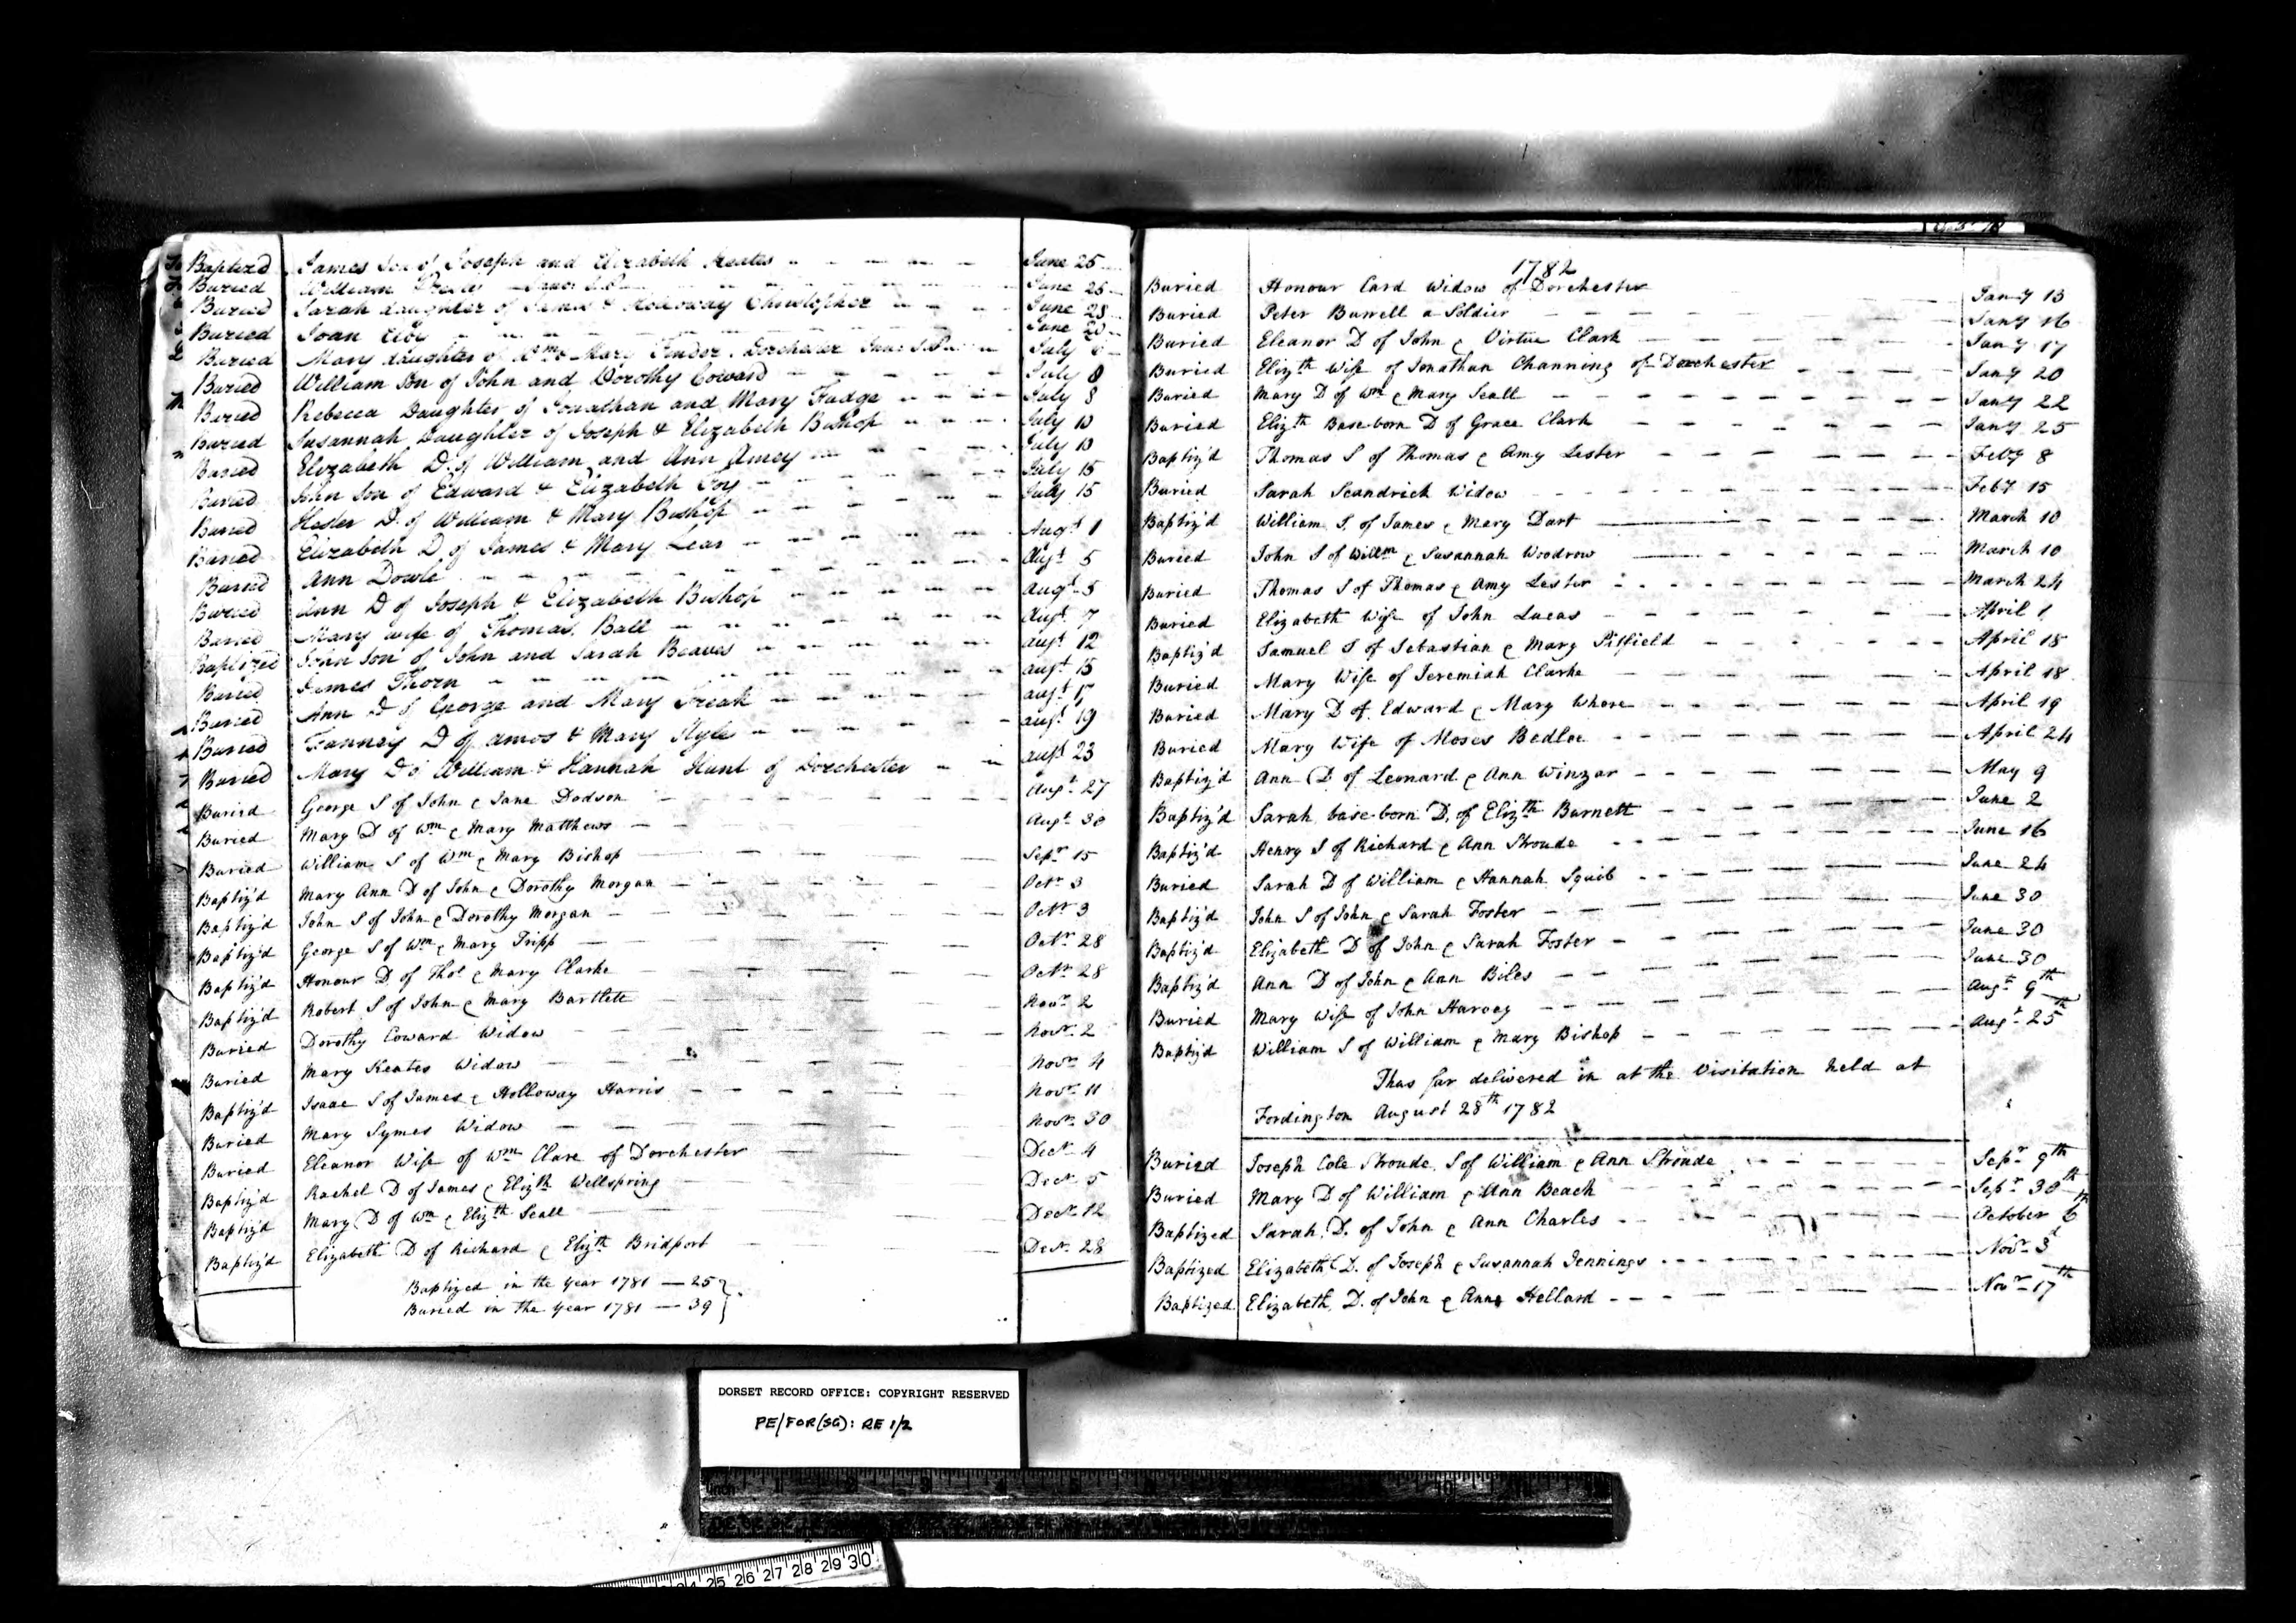 Baptizd James Son of Joseph and Elizabeth Keates June 25
Buried William June 26
Buried Sarah daughter of James & Holloway Christopher June 28
Buried Joan June 20
Buried Mary daughter of Wm & Mary Dorchester July
Buried William Son of John and Dorothy Coward July 8
Buried Rebecca Daughter of Jonathan and Mary Fudge July 8
Buried Susannah Daughter of Joseph & Elizabeth Bishop July 10
Buried Elizabeth D. of William and Ann Amey July 10
Buried John Son of Edward & Elizabeth Foy July 15
Buried Hester D. of William & Mary Bishop July 15
Buried Elizabeth D of James & Mary Lear Augt 1
Buried Ann Dowle Augt 5
Buried Ann D of Joseph & Elizabeth Bishop Augt 5
Buried Mary wife of Thomas Ball Augt 7
Baptized John Son of John and Sarah Beaves Augt 12
Buried James Thorn Augt 15
Buried Ann D of George and Mary Freak Augt 17
Buried Fanney D of Amos & Mary Augt 19
Buried Mary D of William & Hannah Hunt of Dorchester Augt 23
Buried George S of John & Jane Dodson Augt 27
Buried Mary D of Wm & Mary Matthews Augt 30
Buried William S of Wm & Mary Bishop Sepr 15
Baptiz'd Mary Ann D of John & Dorothy Morgan Octr 3
Baptiz'd John S of John & Dorothy Morgan Octr 3
Baptiz'd George S of Wm & Mary Tripp Octr 28
Baptiz'd Honour D. of Thos & Mary Clarke Octr 28
Baptiz'd Robert S of John & Mary Bartlett Novr 2
Buried Dorothy Coward Widow Novr 2
Buried Mary Keates Widow Novr 4
Baptiz'd Isaac S of James & Holloway Harris Novr 11
Buried Mary Symes Widow Novr 30
Buried Eleanor Wife of Wm Clare of Dorchester Decr 4
Baptiz'd Rachel D of James & Elizth Wellspring Decr 5
Baptiz'd Mary D of Wm & Elizth Scall Decr 12
Baptiz'd Elizabeth D of Richard & Elizth Bridport Decr 28
Baptized in the year 1781 — 25
Buried in the year 1781 — 39
1782
Buried Honour Card Widow of Dorchester Jany 13
Buried Peter Burrell a Soldier Jany 16
Buried Eleanor D of John & Virtue Clark Jany 17
Buried Elizth Wife of Jonathan Channing of Dorchester Jany 20
Buried Mary D of Wm & Mary Scall Jany 22
Buried Elizth Base-born D of Grace Clark Jany 25
Baptiz'd Thomas S of Thomas & Amy Lester Feby 8
Buried Sarah Scandrick Widow Feby 15
Baptiz'd William S. of James & Mary Dart March 10
Buried John S of Willm & Susannah Woodrow March 10
Buried Thomas S of Thomas & Amy Lester March 24
Buried Elizabeth Wife of John Lucas April 1
Baptiz'd Samuel S of Sebastian & Mary Pitfield April 18
Buried Mary Wife of Jeremiah Clarke April 18
Buried Mary D of Edward & Mary Whore April 19
Buried Mary Wife of Moses Bedloe April 24
Baptiz'd Ann D of Leonard & Ann Winzar May 9
Baptiz'd Sarah base-born D. of Elizth Burnett June 2
Baptiz'd Henry S of Richard & Ann Stroude June 16
Buried Sarah D of William & Hannah Squib June 24
Baptiz'd John S of John & Sarah Foster June 30
Baptiz'd Elizabeth D of John & Sarah Foster June 30
Baptiz'd Ann D of John & Ann Biles June 30
Buried Mary Wife of John Harvey Augt 9th
Baptiz'd William S of William & Mary Bishop Augt 25th
Thus far delivered in at the Visitation held at
Fordington August 28th 1782
Buried Joseph Cole Stroude S of William & Ann Stroude Sepr 9th
Buried Mary D of William & Ann Beach Sepr 30th
Baptized Sarah D. of John & Ann Charles October 6th
Baptized Elizabeth D. of Joseph & Susannah Jennings Novr 3d
Baptized Elizabeth D. of John & Anne Hellard Novr 17th
DORSET RECORD OFFICE: COPYRIGHT RESERVED
PE/FOR(SG): RE 1/2
25 26 27 28 29 30